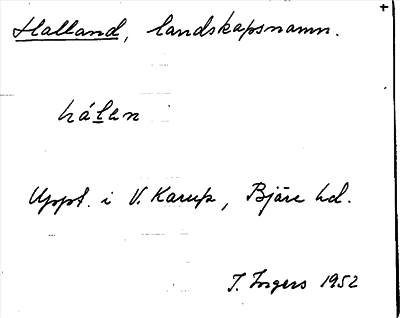 Halland, landskapsnamn.
hálen
Uppt. i V. Karup, Bjäre hd.
I. Ingers 1952